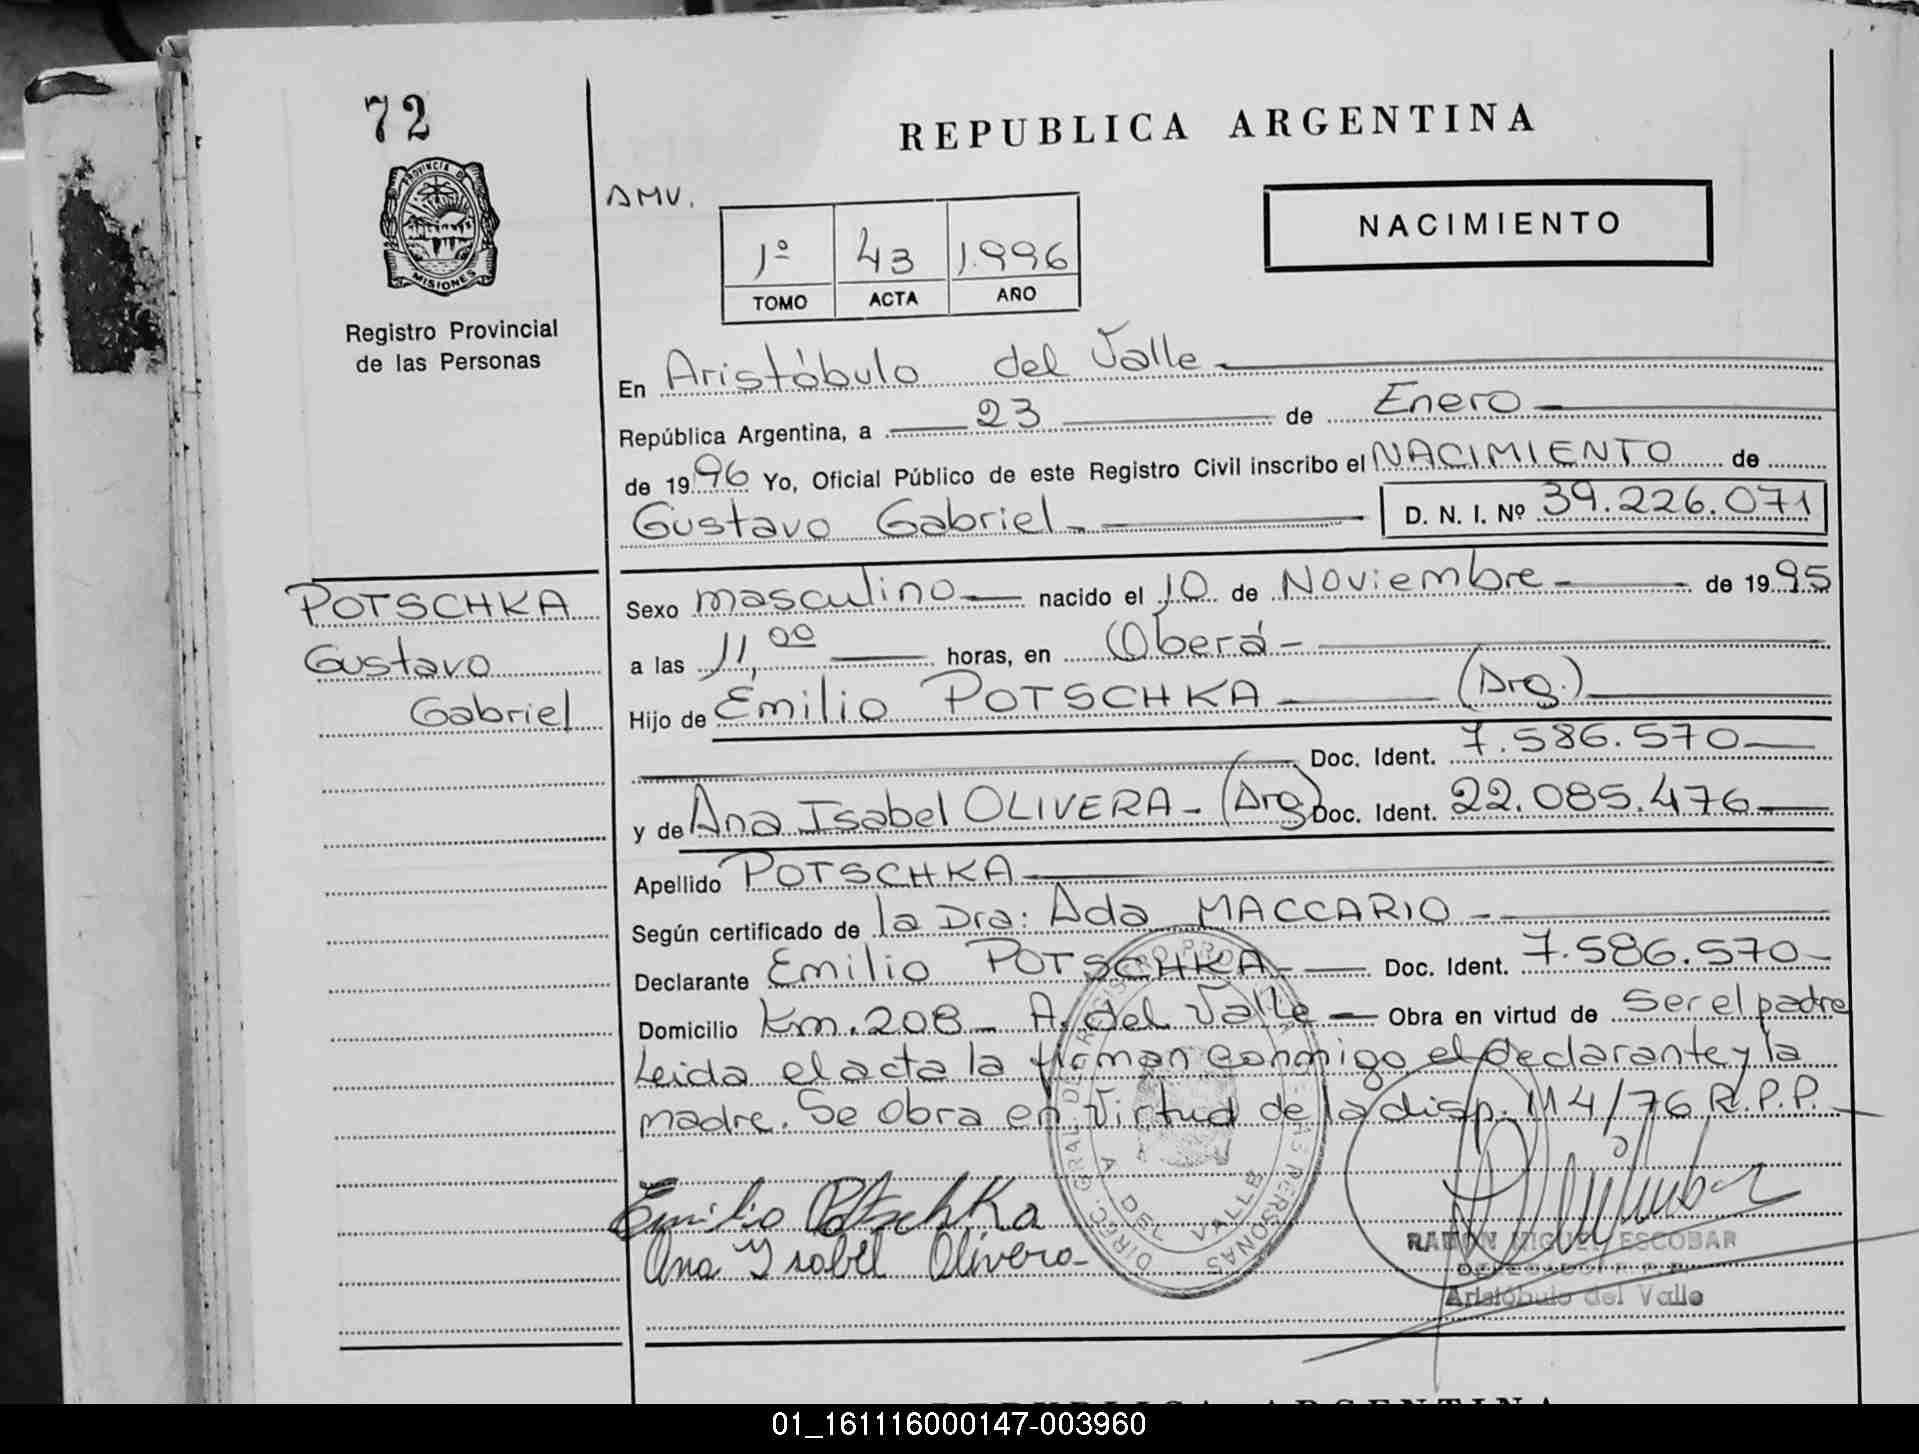 72
REPUBLICA ARGENTINA
PROVINCIA DE
MISIONES
Registro Provincial
de las Personas
AMV.
1º 43 1.996
TOMO ACTA AÑO
NACIMIENTO
En Aristóbulo del Valle
República Argentina, a 23 de Enero
de 1996 Yo, Oficial Público de este Registro Civil inscribo el NACIMIENTO de
Gustavo Gabriel D. N. I. Nº 39.226.071
POTSCHKA
Gustavo
Gabriel
Sexo masculino nacido el 10 de Noviembre de 1995
a las 11,00 horas, en Oberá
Hijo de Emilio POTSCHKA (Arg.)
Doc. Ident. 7.586.570
y de Ana Isabel OLIVERA - (Arg) Doc. Ident. 22.085.476
Apellido POTSCHKA
Según certificado de la Dra: Ada MACCARIO
Declarante Emilio POTSCHKA Doc. Ident. 7.586.570
Domicilio Km. 208 - A. del Valle Obra en virtud de Ser el padre
Leida el acta la firman conmigo el declarante y la
madre. Se obra en virtud de la disp. 114/76 R.P.P.
Emilio Potschka
Ana Ysabel Olivera
DIREC. GRAL. DE REGISTRO PROV. DE LAS PERSONAS
A DEL VALLE
RAMON MIGUEL ESCOBAR
Aristóbulo del Valle
REPUBLICA ARGENTINA
01_161116000147-003960